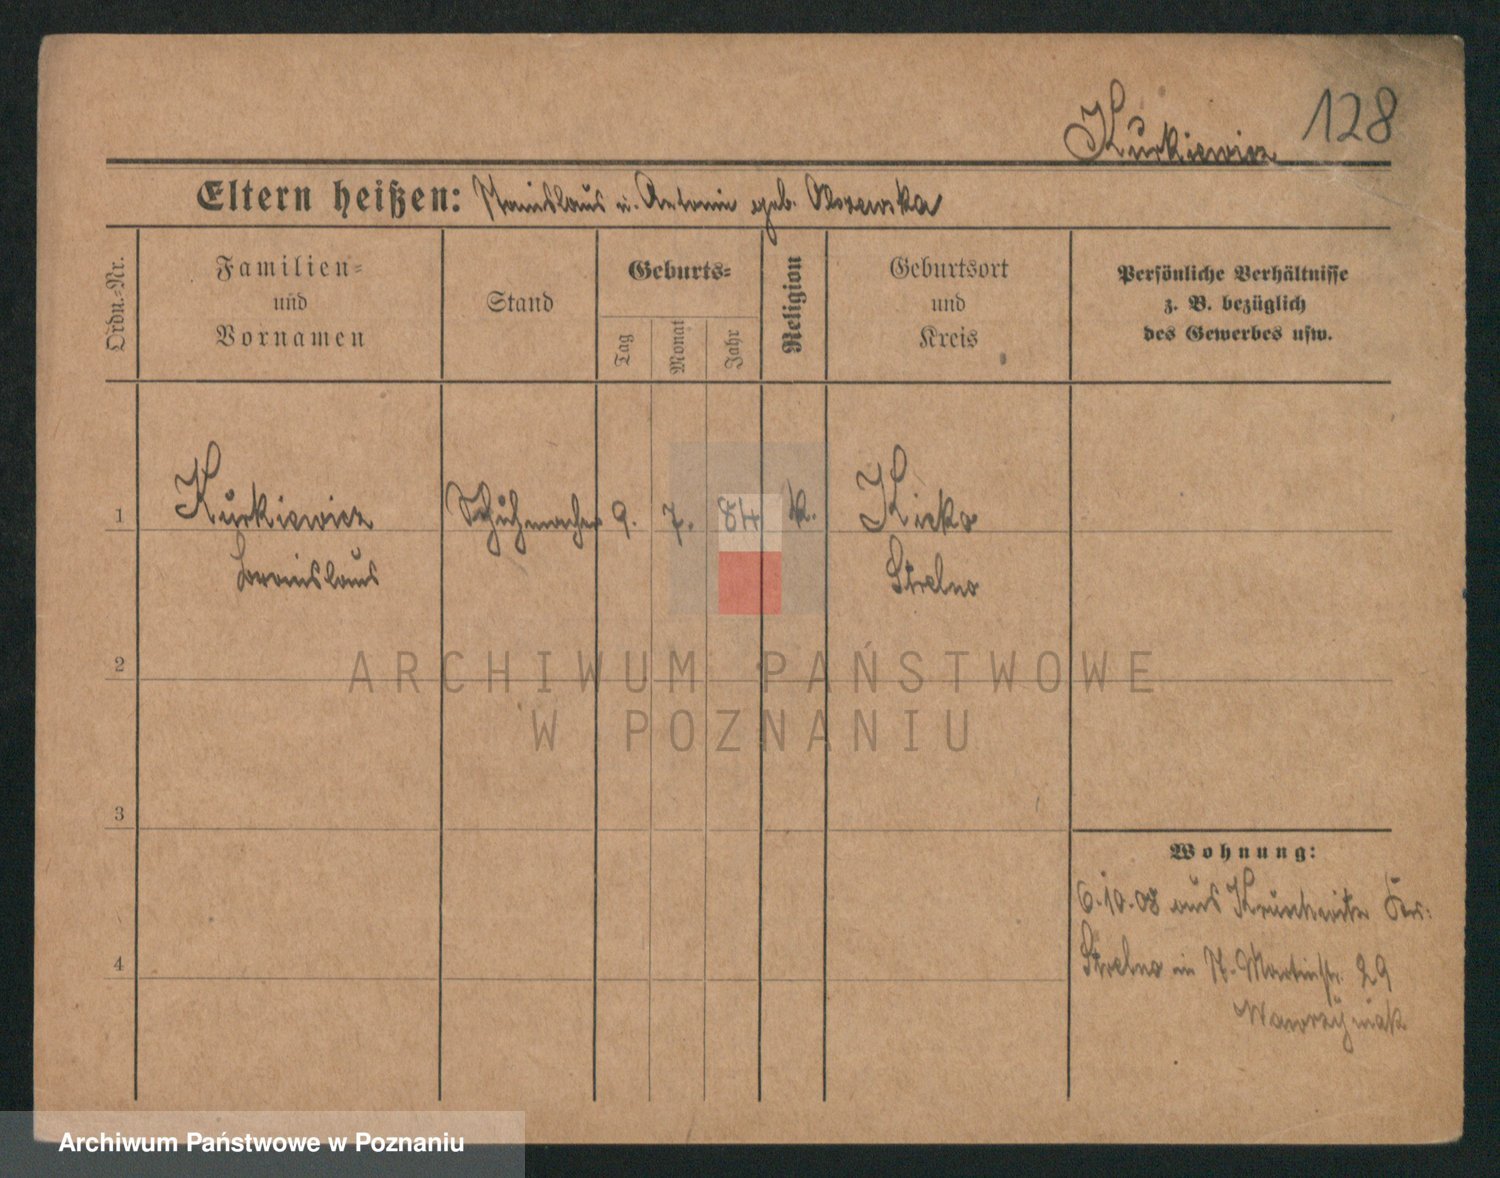 128
Kurkiewicz
Eltern heißen: Stanislaus u. Antonie geb.
Ordn.-Nr.
Familien-
und
Vornamen
Stand
Geburts-
Tag
Monat
Jahr
Religion
Geburtsort
und
Kreis
Persönliche Verhältnisse
z. B. bezüglich
des Gewerbes usw.
1
Kurkiewicz
Schuhmacher
9.
7.
84
k.
Kicko
Strelno
2
ARCHIWUM PAŃSTWOWE
W POZNANIU
3
Wohnung:
6.10.08 aus
Strelno in Martinstr. 29
Wawrzyniak
4
Archiwum Państwowe w Poznaniu